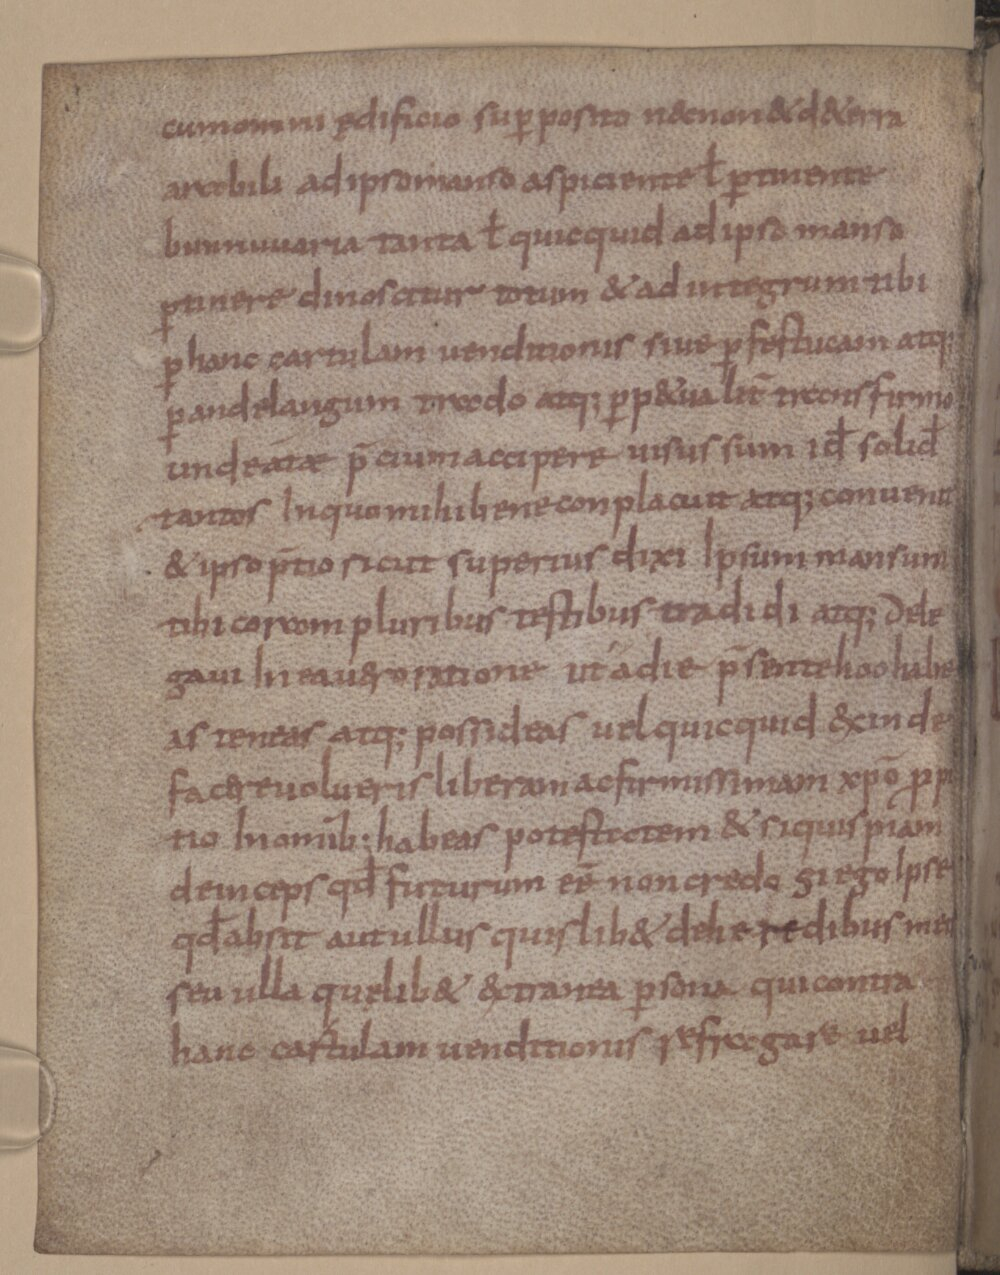 cum omni ędificio sup̱ posito n&cnon & d& erra
arabili ad ipso manso aspiciente ł p̱tinente
bunnuuaria tanta ł quicquid ad ipso manso
p̱tinere dinoscitur totum & ad integrum tibi
p̱ hanc cartulam uenditionis siue p̱ festucam atq;
p̱ andelangum trado atq; p̱p&ualit̄ transfirmo
unde a p̄cium accipere uisus sum id̄ solid̄
tantos In quo mihi bene conplacuit atq; conuenit
& ipso p̄tio sicut superius dixi Ipsum mansum
tibi coram pluribus testibus tradidi atq; Dele
gaui In ea u&ro ratione ut a die p̄sente hoc habe
as teneas atq; possideas uel quicquid &cinde
fac&re uolueris liberam ac firmissimam xp̄o p̱p
tio In omib; habeas potestatem & siquispiam
deinceps qd̄ futurum eē non credo si ego Ipse
qd̄ absit aut ullus quislib& de heredibus meis
seu ulla quęlib& &tranea p̱sona qui contra
hanc cartulam uenditionis refragare uel